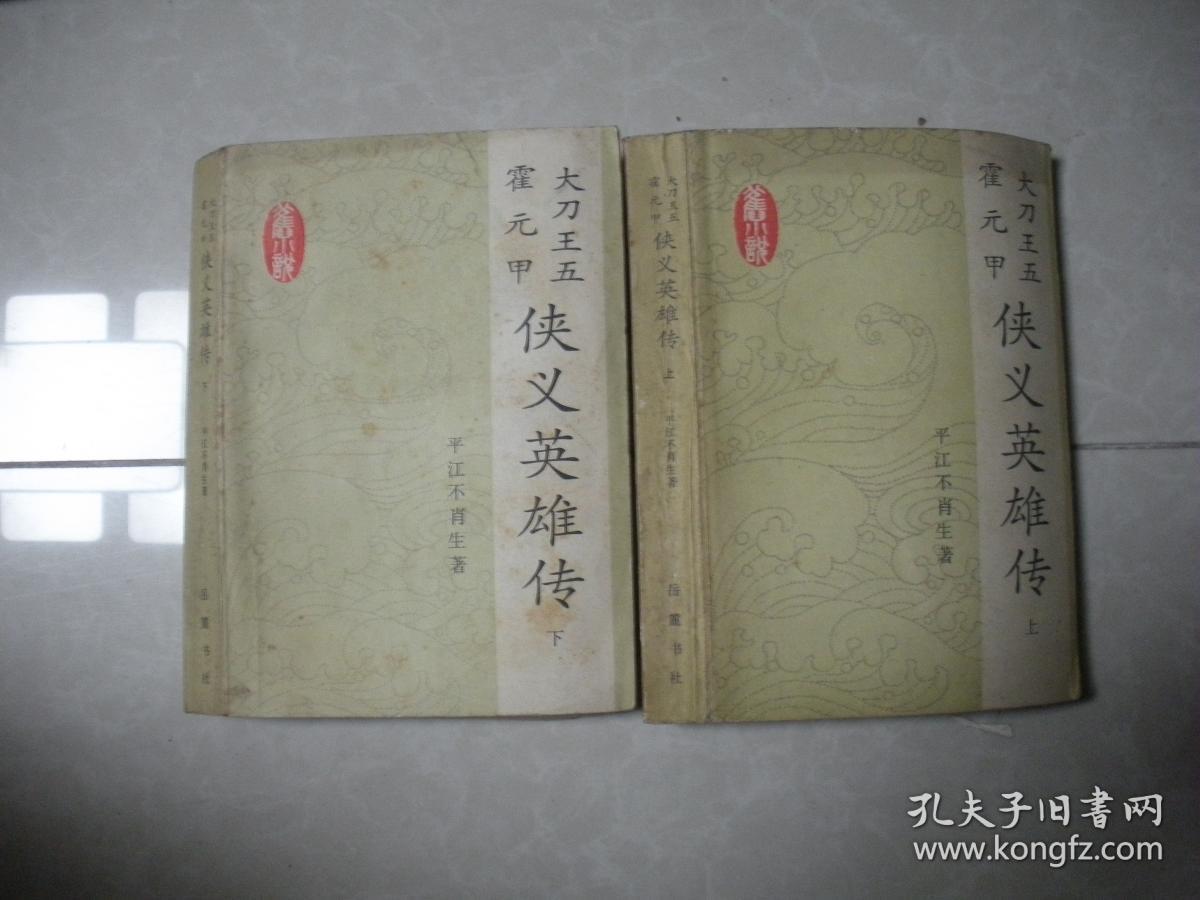 大刀王五
霍元甲
侠义英雄传
下
平江不肖生著
旧小說
大刀王五
霍元甲
侠义英雄传
下
平江不肖生著
岳麓书社
大刀王五
霍元甲
侠义英雄传
上
平江不肖生著
旧小說
大刀王五
霍元甲
侠义英雄传
上
平江不肖生著
岳麓书社
孔夫子旧书网
www.kongfz.com